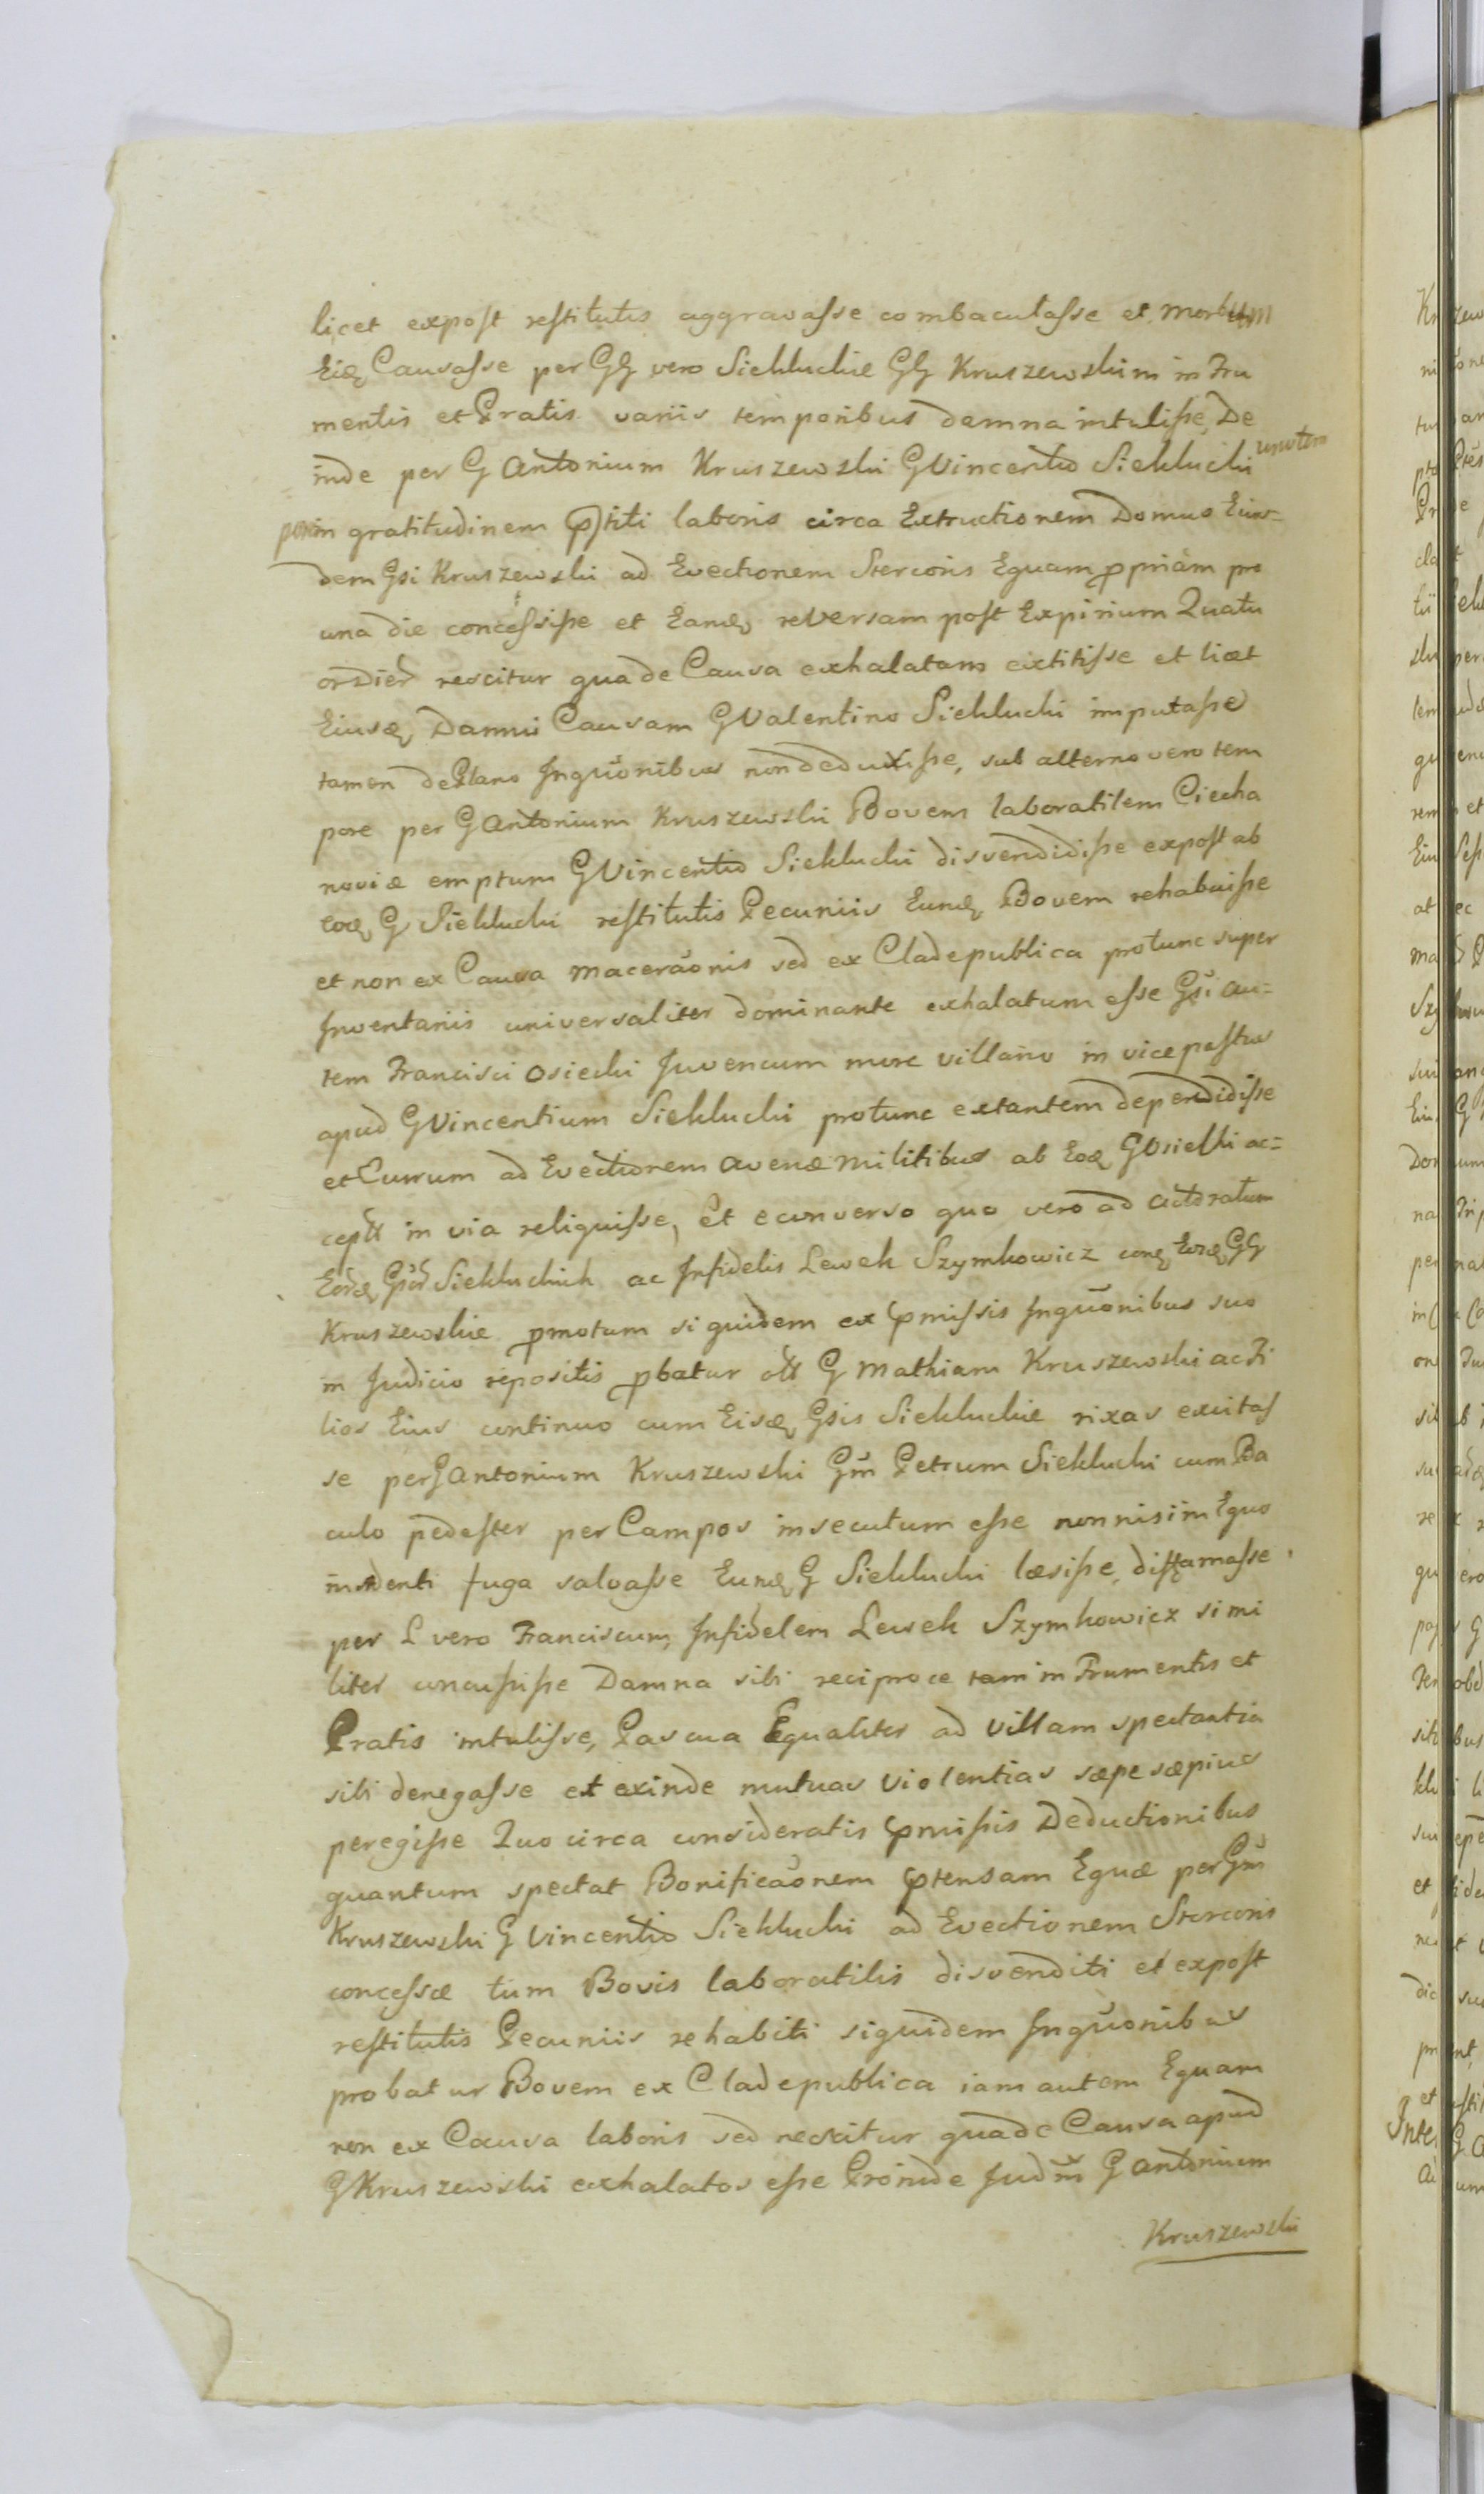 licet expost restitutis aggravasse combaculasse et morbum
Eidq Causasse per GG vero Siekluckie GG Kruszewskim in Fru
mentis et Pratis variis temporibus damna intulisse, De
inde per G Antonium Kruszewski G Vincentio Sieklucki
in gratitudinem p̄stiti laboris circa Extructionem Domus Eius=
dem Gsi Kruszewski ad Evectionem Stercoris Equam ppriam pro
una die concessisse et Eandq reversam post Expirium Quatu
ordierū nescitur qua de Causa exhalatam extitisse et licet
Eiusdq Damni Causam G Valentino Sieklucki imputasse
tamen de Plano Inquōnibus non deduxisse, sub alterno vero tem
pore per G Antonium Kruszewski Bovem laboratilem Ciecha
noviæ emptum G Vincentio Sieklucki disvendidisse expost ab
eodq G Sieklucki restitutis Pecuniis Eundq Bovem rehabuisse
et non ex Causa maceraōnis sed ex Clade publica protunc super
Inventariis universaliter dominante exhalatum esse Gsi au=
tem Francisci Osiecki Juvencum more villano in vice pastus
apud G Vincentium Sieklucki protunc extantem dependidisse
et Currum ad Evectionem avenæ militibus ab Eodq G Osielki ac=
ceptū in via reliquisse, et e converso quo vero ad actoratum
Eordq Gsor Siekluckich ac Infidelis Lewek Szymkowicz conq Eosdq GG
Kruszewskie pmotum siquidem ex p̄missis Inquōnibus suo
in Judicio repositis pbatur ott G Mathiam Kruszewski ac Fi
lios Eius continuo cum Eisdq Gsis Siekluckie rixas excitas
se per G Antonium Kruszewski Gm̄ Petrum Sieklucki cum Ba
culo pedester per Campos insecutum esse non nisi in Equo
insidenti fuga salvasse Eundq G Sieklucki læsisse, diffamasse
per L vero Franciscum, Infidelem Lewek Szymkowicz simi
liter concussisse Damna sibi reciproce tam in Frumentis et
Pratis intulisse, Pascua Equaliter ad villam spectantia
sibi denegasse et exinde mutuas violentias sæpe sæpius
peregisse Quo circa consideratis p̄missis Deductionibus
quantum spectat Bonificaōnem p̄tensam Equæ per Gm̄
Kruszewski G Vincentio Sieklucki ad Evectionem Stercoris
concessæ tum Bovis laboratilis disvenditi et expost
restitutis Pecuniis rehabiti siquidem Inquōnibus
probatur Bovem ex Clade publica iam autem Equam
non ex Causa laboris sed nescitur qua de Causa apud
G Kruszewski exhalatos esse Proinde Judm̄ G Antonium
Kruszewski